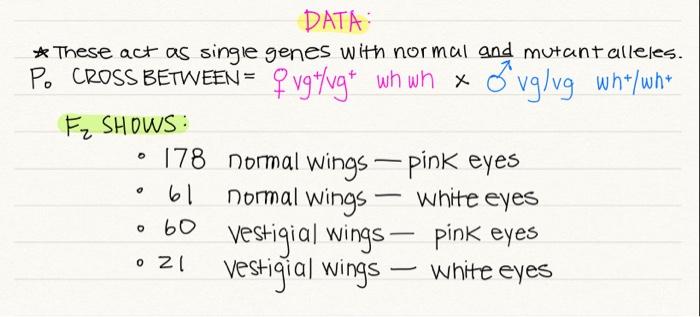 DATA:
*These act as single genes with normal and mutant alleles.
P₀ CROSS BETWEEN= ♀ vg⁺/vg⁺ wh wh x ♂ vg/vg wh⁺/wh⁺
F₂ SHOWS:
• 178 normal wings — pink eyes
• 61 normal wings — white eyes
• 60 vestigial wings — pink eyes
• 21 vestigial wings — white eyes